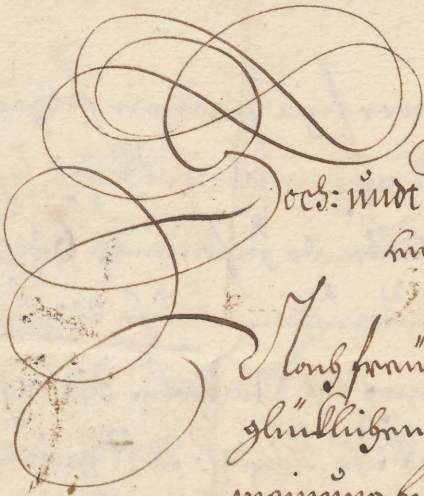 Hoch: undt
Nach freü
glücklichen
meinung